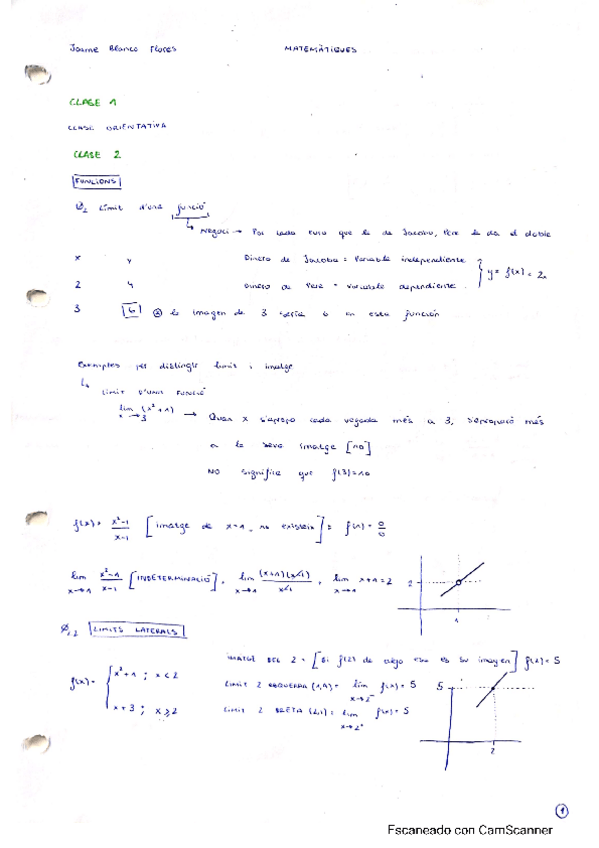 Jaume Blanco Flores MATEMÀTIQUES
CLASE 1
CLASE ORIENTATIVA
CLASE 2
FUNCIONS
Límit d'una funció
↳ Negoci → Por cada euro que le de Jacobo, Pere le da el doble
x y Dinero de Jacobo = Variable independiente
2 4 Dinero de Pere = variable dependiente } y = f(x) = 2x
3 6 la imagen de 3 seria 6 en esta función
Exemples per distingir limit i imatge
↳ LIMIT D'UNA FUNCIÓ
lim x→3 (x²+1) → Quan x s'apropa cada vegada més a 3, s'apropa més
a la seva imatge [10]
NO significa que f(3)=10
f(x) = x²-1 / x-1 [imatge de x=1, no existeix] = f(1) = 0/0
lim x→1 x²-1 / x-1 [INDETERMINACIÓ] = lim x→1 (x+1)(x-1) / x-1 = lim x→1 x+1 = 2
2
1
1.2 LIMITS LATERALS
f(x) = { x²+1 ; x<2
x+3 ; x≥2
IMATGE DEL 2 = [Si f(2) da algo ese es su imagen] f(2) = 5
LIMIT 2 ESQUERRA (1,9) = lim x→2⁻ f(x) = 5
LIMIT 2 DRETA (2,1) = lim x→2⁺ f(x) = 5
5
2
1
Escaneado con CamScanner